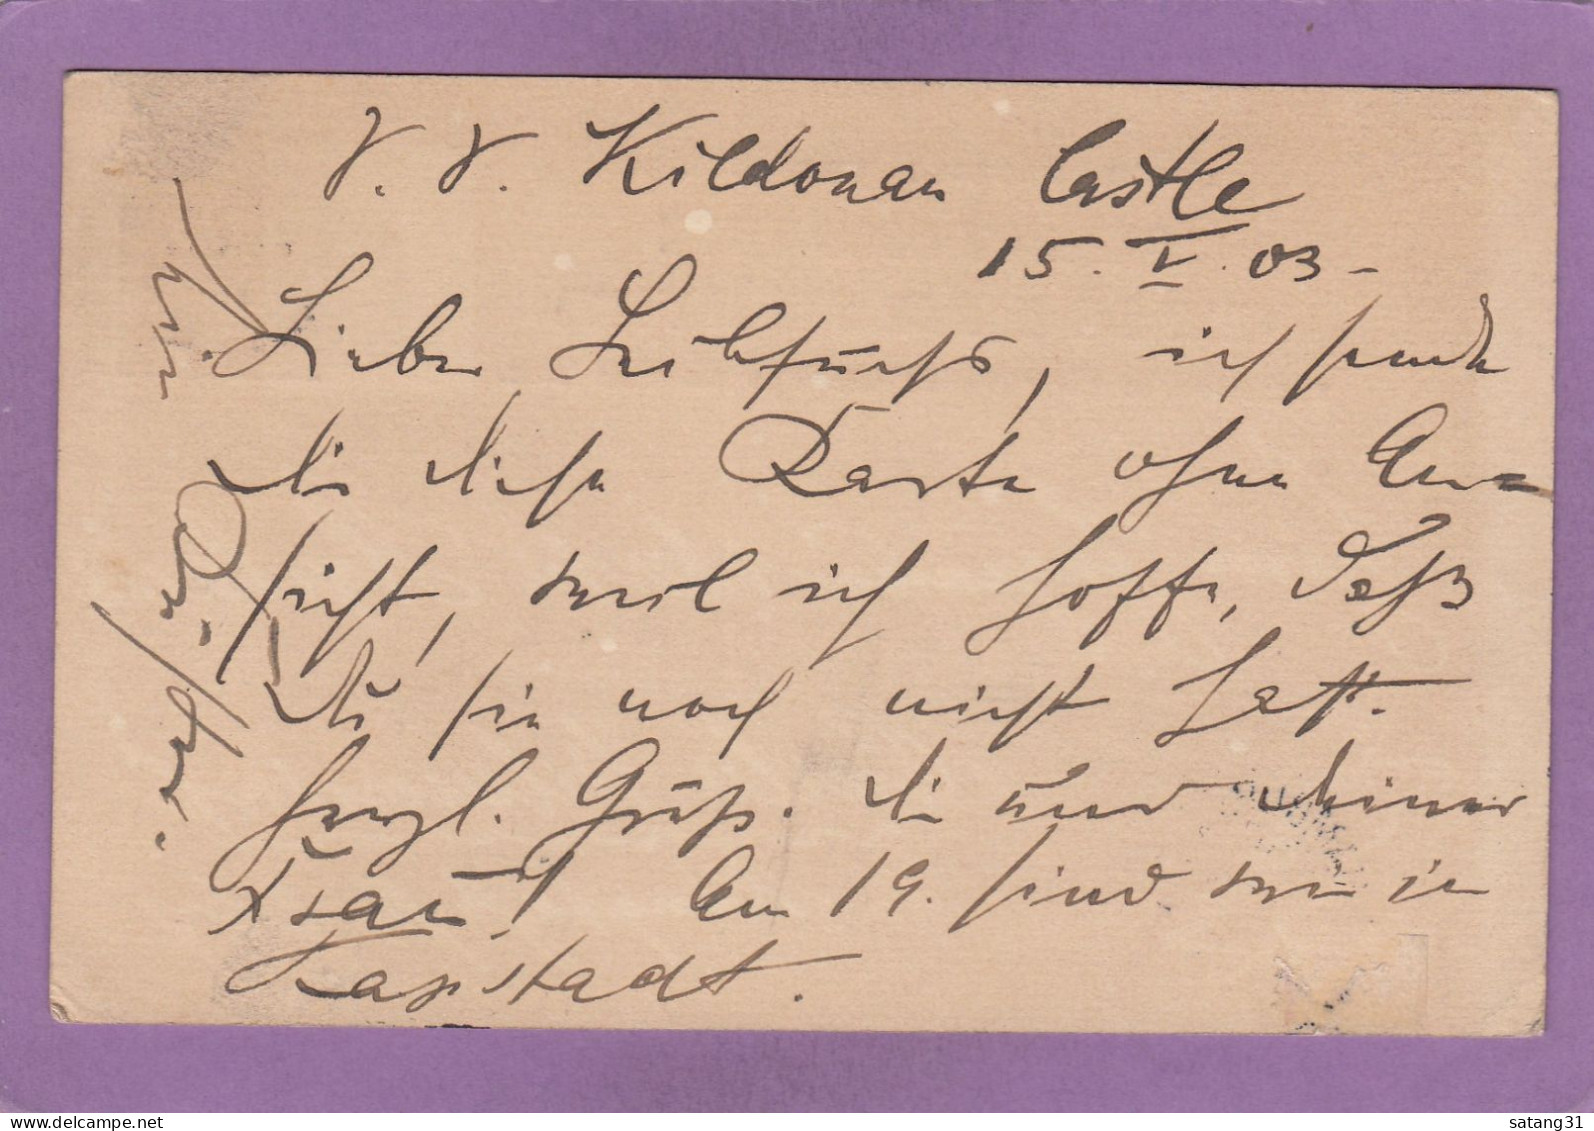 S. S. Kildonan Castle
15. V. 03 -
Lieber Leibfuchs, ich sende
dir diese Karte ohne An=
sicht, weil ich hoffe, daß
Du sie noch nicht hast.
Herzl. Gruß. dir und deiner
Frau! Am 19. sind wir in
Kapstadt.
Dein
satang31